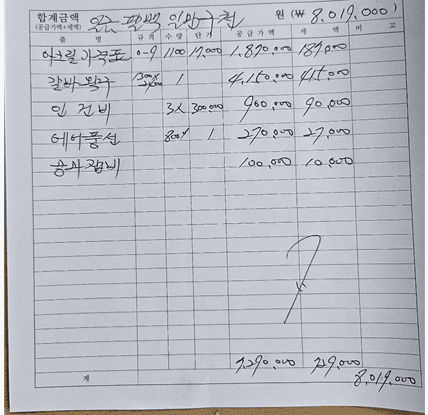 합계금액 일금 팔백 일만구천 원 (₩ 8,019,000)
(공급가액+세액)
품 명 규격 수량 단가 공급가액 세액 비고
0-9 1100 17,000 1,870,000 187,000
갈바 1 4,150,000 415,000
인건비 3人 300,000 900,000 90,000
에어풍선 1 270,000 27,000
공사잡비 100,000 10,000
7,290,000 729,000
계 8,019,000